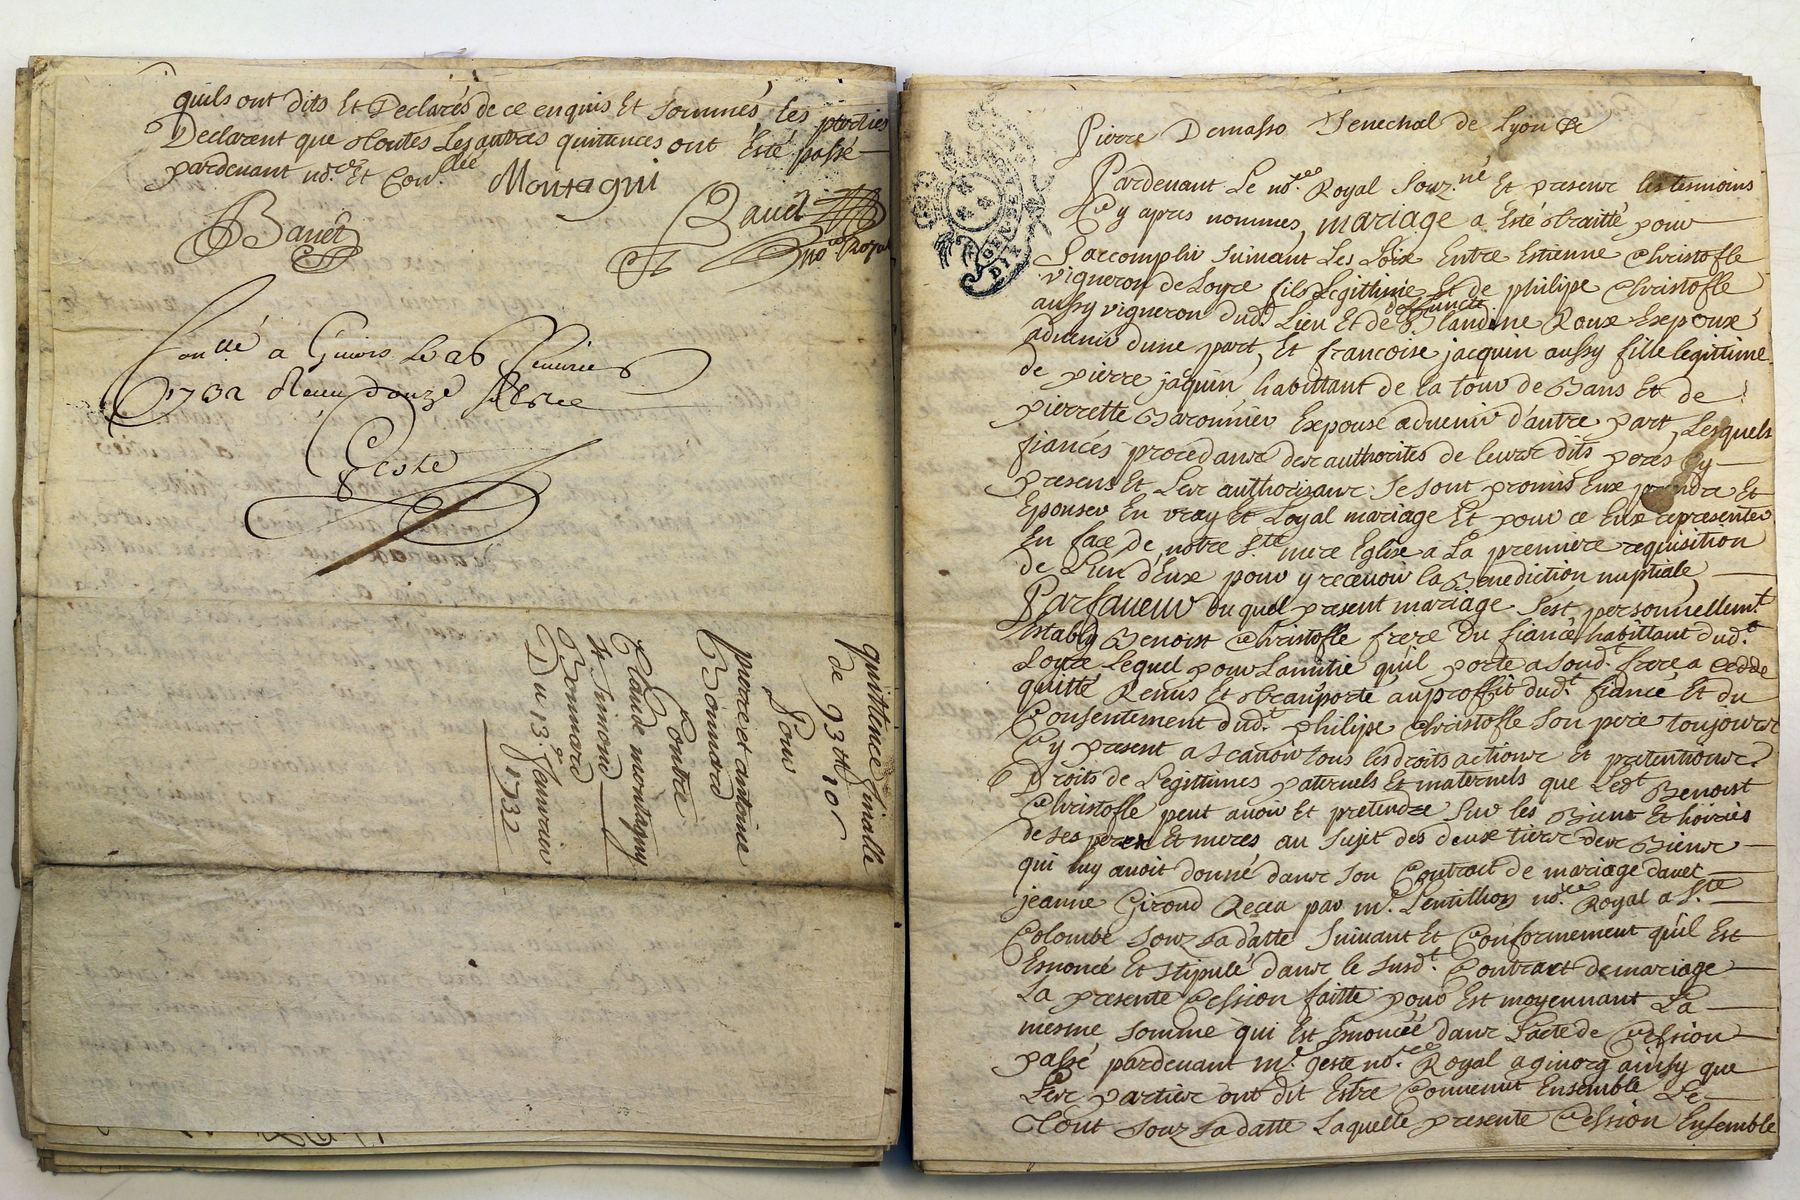 quils ont dits Et Declarés de ce enquis Et sommés les parties
Declarent que toutes Les autres quittances ont Esté passé
pardevant no.re Et Con.llée
Montagni
Banet
Banet
no.re Royal
Con.llé a Givors Le 26 Janvier
1732 Reçu douze sols
Geste
quittance finalle
de 93tt 10s
Pour
pierre et antoinne
Bonnard
Contre
Claude montagny
et simond
Bonnard
Du 13.e Jeanvrier
1732
Pierre Demasso Senechal de Lyon &
Pardevant Le no.re Royal Souz.né Et presens les tesmoins
Cy apres nommes, mariage a Esté traitté pour
Saccomplir suivant Les Loix Entre Estienne Christofle
vigneron de Loyre fils Legithme Et de philipe Christofle
aussy vigneron dud.t Lieu Et de deffuncte Blandine Roux Expoux
advenir dune part, Et francoise jacquin aussy fille legittime
de pierre jaquin habittant de la tour de Bans Et de
pierrette Baronnier Expouse advenir d'autre part, Lesquels
fiancés procedans des authorites de leurs dits peres Cy
presens Et Les authorizans se sont promis Eux prendre Et
Epouser En vray Et Loyal mariage Et pour ce Eux representer
En face de notre S.te mere Eglise a La premiere requisition
de L'un d'Eux pour y recevoir la Benediction nuptiale
Parfaveur du quel present mariage sest personnellem.t
Establÿ Benoist Christofle frere du fiancé habittant dud.t
Loyre Lequel pour Lamitié qu'il porte a soud.t frere a cedde
quitté Remis Et transporté auproffit dud.t fiancé Et du
Consentement dud.t philipe Christofle son pere toujours
Cy present a scavoir tous les droits actions Et pretentions
Droits de Legittimes paternels Et maternels que Led.t Benoist
Christofle peut avoir Et pretendre sur les Biens Et hoiries
de ses peres Et meres au sujet des deux tiers des Biens
qui luy avoit donné dans son Contrait de mariage davec
jeanne Giroud Reçeu par m.e Pentillion no.re Royal a S.te
Colombe souz sa datte suivant Et Conformement qu'il Est
Enoncé Et stipulé dans le susd.t Contract demariage
La presente Cession faitte pour Est moyennant La
mesme somme qui Est Enoncée dans L'acte de Cession
passé pardevant m.e geste no.re Royal a givorg ainsy que
Les parties ont dit Estre Convenut Ensemble Le
Tout souz sa datte Laquelle presente Cession Ensemble